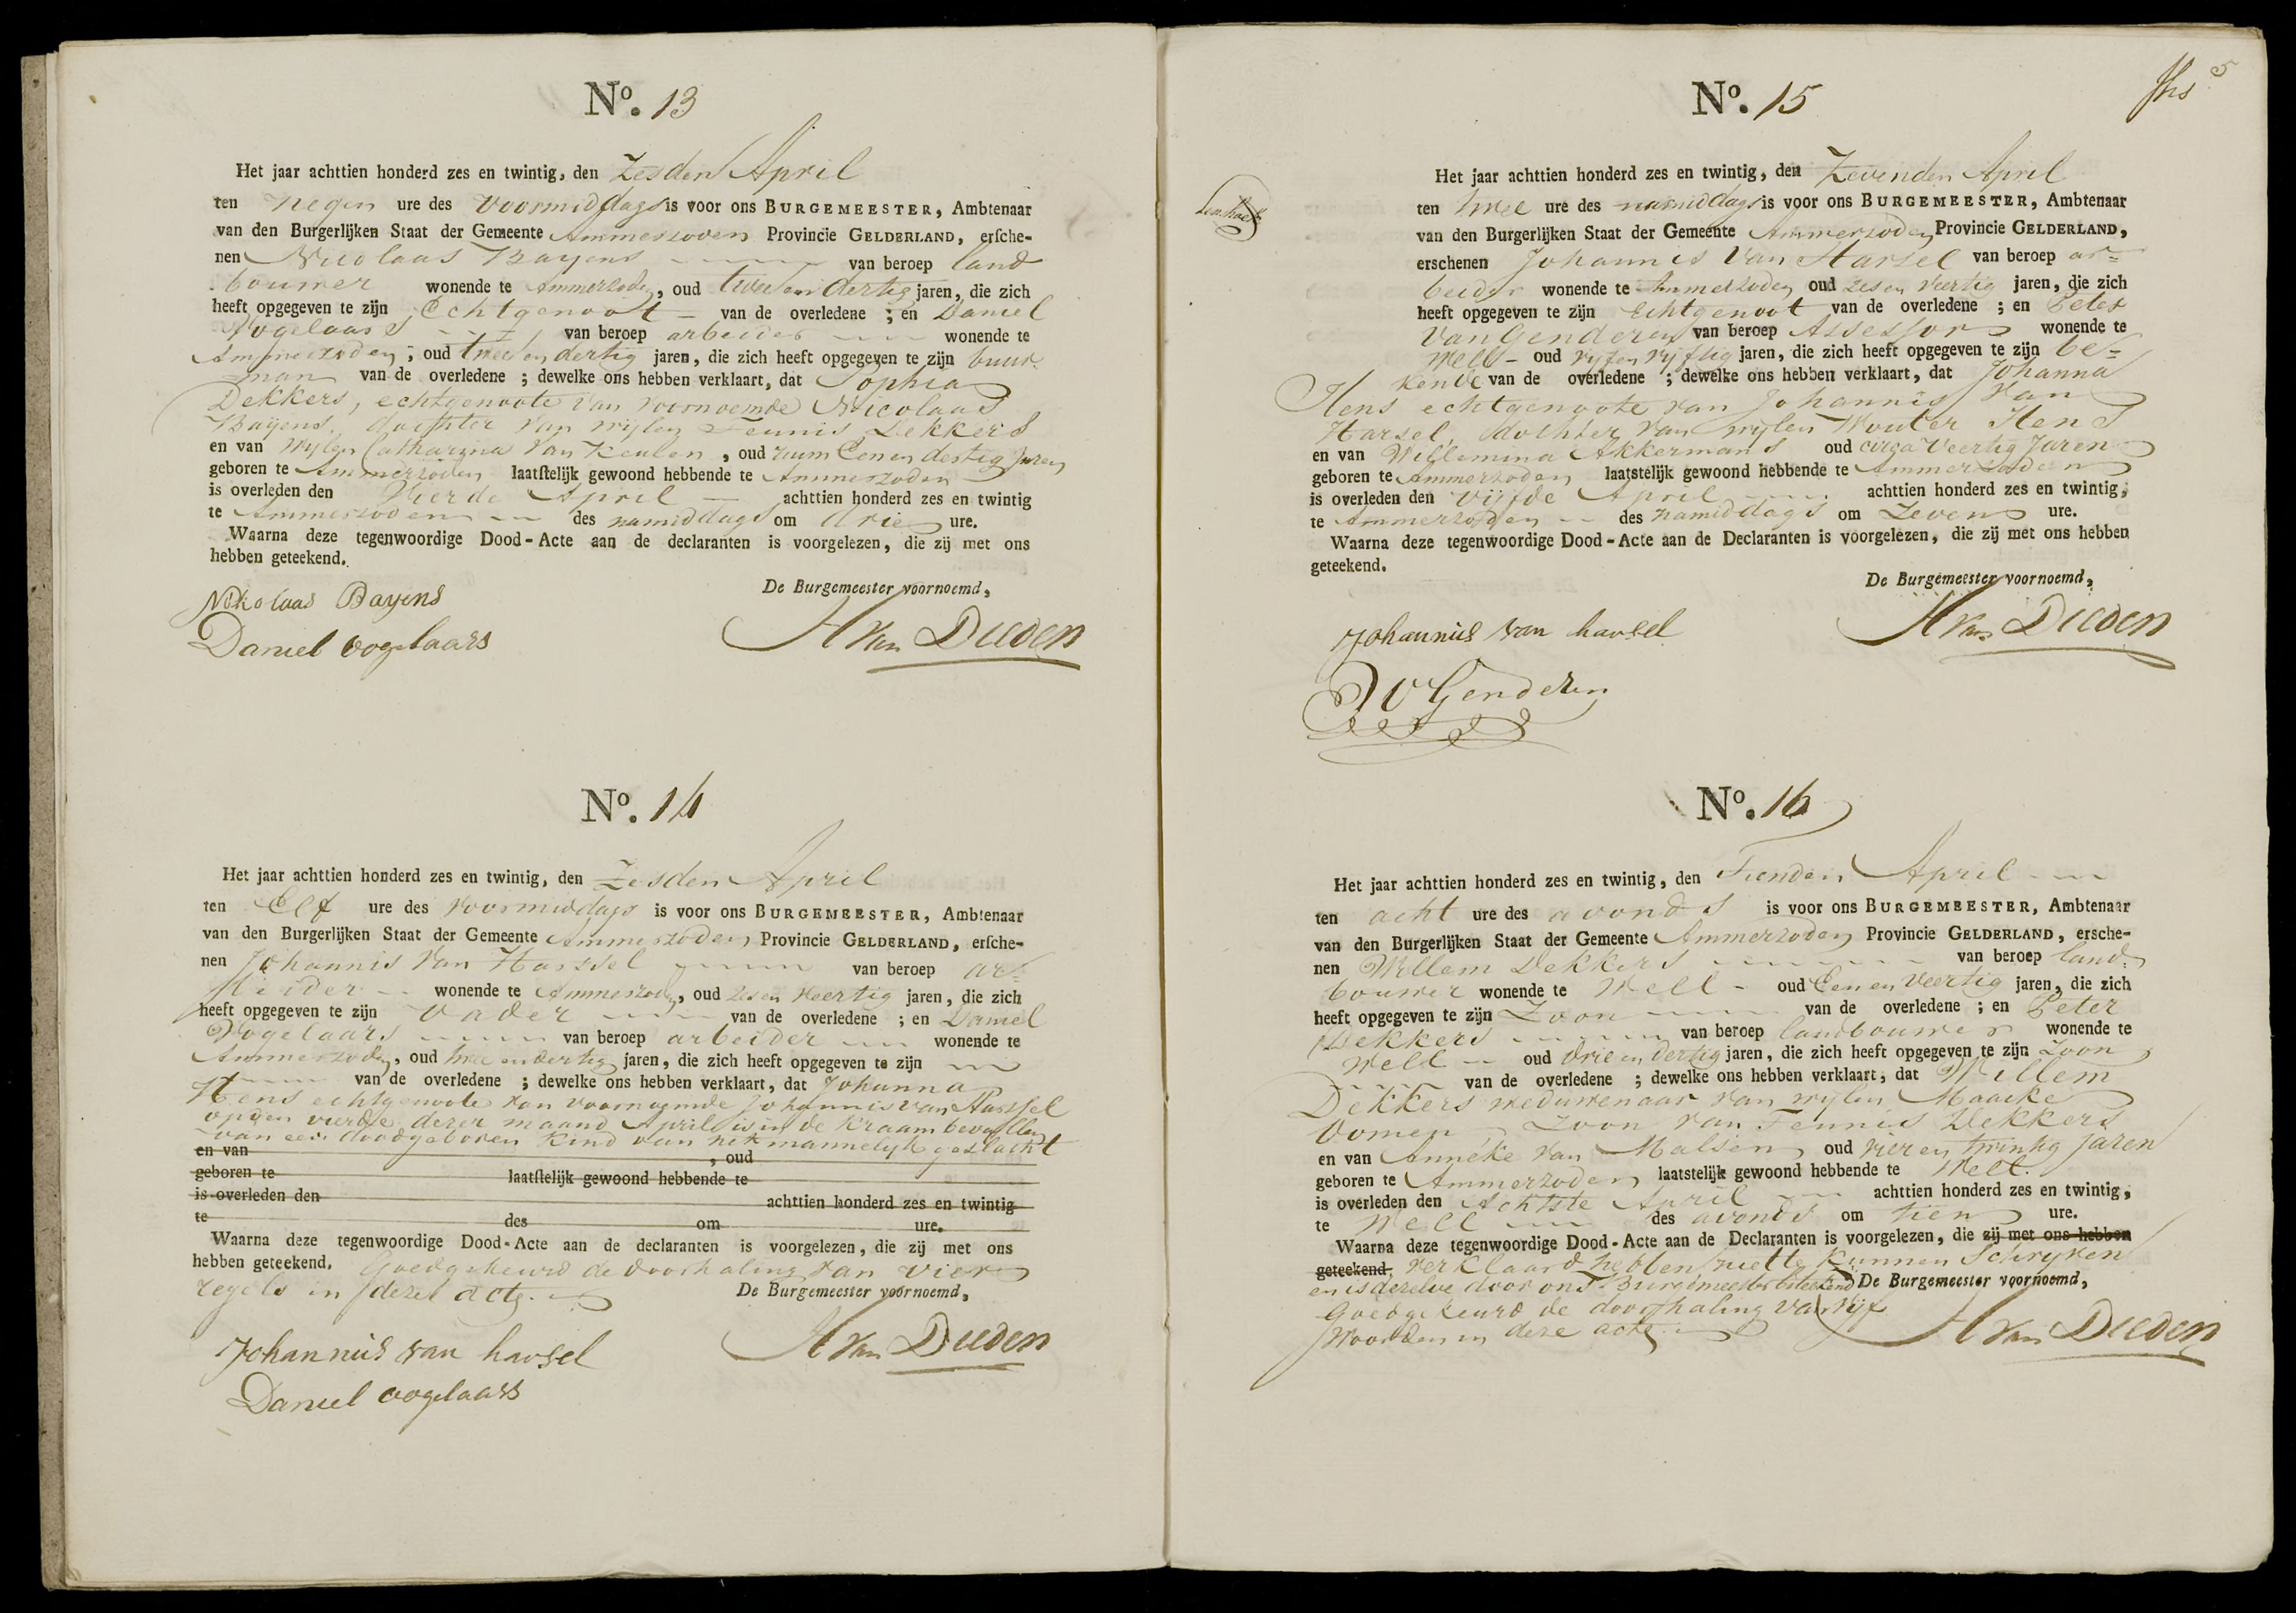 No. 13
Het jaar achttien honderd zes en twintig, den Zesden April
ten negen ure des voormiddags is voor ons BURGEMEESTER, Ambtenaar
van den Burgerlijken Staat der Gemeente Ammerzoden Provincie GELDERLAND, ersche-
nen Nicolaas Bayens van beroep land
bouwer wonende te Ammerzoden, oud twee en dertig jaren, die zich
heeft opgegeven te zijn Echtgenoot van de overledene ; en Daniel
Vogelaars van beroep arbeider wonende te
Ammerzoden, oud twee en dertig jaren, die zich heeft opgegeven te zijn buur-
man van de overledene ; dewelke ons hebben verklaart, dat Sophia
Dekkers, echtgenoote van voornoemde Nicolaas
Bayens, dochter van wylen Teunis Dekkers
en van wylen Catharina van Keulen, oud ruim Een en dertig Jaren
geboren te Ammerzoden laatstelijk gewoond hebbende te Ammerzoden
is overleden den Vierde April achttien honderd zes en twintig
te Ammerzoden des namiddags om drie ure.
Waarna deze tegenwoordige Dood-Acte aan de declaranten is voorgelezen, die zij met ons
hebben geteekend.
De Burgemeester voornoemd,
Nikolaas Bayens
Daniel vogelaars
H van Dieden
No. 14
Het jaar achttien honderd zes en twintig, den Zesden April
ten Elf ure des voormiddags is voor ons BURGEMEESTER, Ambtenaar
van den Burgerlijken Staat der Gemeente Ammerzoden Provincie GELDERLAND, ersche-
nen Johannis Van Harssel van beroep ar-
beider wonende te Ammerzoden, oud zes en veertig jaren, die zich
heeft opgegeven te zijn Vader van de overledene ; en Daniel
Vogelaars van beroep arbeider wonende te
Ammerzoden, oud twee en dertig jaren, die zich heeft opgegeven te zijn
van de overledene ; dewelke ons hebben verklaart, dat Johanna
Hens echtgenoote van voornoemde Johannis van Harssel
op den vierde dezer maand April is in de kraam bevallen
van een doodgeboren kind van het mannelyk geslacht
en van , oud
geboren te laatstelijk gewoond hebbende te
is overleden den achttien honderd zes en twintig
te des om ure.
Waarna deze tegenwoordige Dood-Acte aan de declaranten is voorgelezen, die zij met ons
hebben geteekend. Goedgekeurd de doorhaling van vier
regels in deze acte.
De Burgemeester voornoemd,
Johannis van harsel
Daniel vogelaars
H van Dieden
5
No. 15
Het jaar achttien honderd zes en twintig, den Zevenden April
ten twee ure des namiddags is voor ons BURGEMEESTER, Ambtenaar
van den Burgerlijken Staat der Gemeente Ammerzoden Provincie GELDERLAND,
erschenen Johannis Van Harsel van beroep ar-
beider wonende te Ammerzoden oud zes en veertig jaren, die zich
heeft opgegeven te zijn Echtgenoot van de overledene ; en Peter
Van Genderen van beroep Assessor wonende te
Well oud vyf en vyftig jaren, die zich heeft opgegeven te zijn be-
kende van de overledene ; dewelke ons hebben verklaart, dat Johanna
Hens echtgenoote van Johannis Van
Harsel, dochter van wylen Wouter Hens
en van Willemina Akkermans oud circa Veertig Jaren
geboren te Ammerzoden laatstelijk gewoond hebbende te Ammerzoden
is overleden den Vijfde April achttien honderd zes en twintig,
te Ammerzoden des namiddags om Zeven ure.
Waarna deze tegenwoordige Dood-Acte aan de Declaranten is voorgelezen, die zij met ons hebben
geteekend.
De Burgemeester voornoemd,
Johannis van harsel
H van Dieden
P V Genderen
No. 16
Het jaar achttien honderd zes en twintig, den Tienden April
ten acht ure des avonds is voor ons BURGEMEESTER, Ambtenaar
van den Burgerlijken Staat der Gemeente Ammerzoden Provincie GELDERLAND, ersche-
nen Willem Dekkers van beroep land
bouwer wonende te Well oud Een en Veertig jaren, die zich
heeft opgegeven te zijn Zoon van de overledene ; en Peter
Dekkers van beroep landbouwer wonende te
Well oud drie en dertig jaren, die zich heeft opgegeven te zijn Zoon
van de overledene ; dewelke ons hebben verklaart, dat Willem
Dekkers weduwenaar van wylen Maaike
Vomen, Zoon van Teunis Dekkers
en van Anneke van Malsen, oud vier en twintig Jaren
geboren te Ammerzoden laatstelijk gewoond hebbende te Well.
is overleden den Achtste April achttien honderd zes en twintig,
te Well des avonds om tien ure.
Waarna deze tegenwoordige Dood-Acte aan de Declaranten is voorgelezen, die zij met ons hebben
geteekend, verklaard hebben niet te kunnen Schryven
en is dezelve door ons Burgemeester geteekend De Burgemeester voornoemd,
Goedgekeurd de doorhaling van vyf
Woorden in deze acte.
H van Dieden